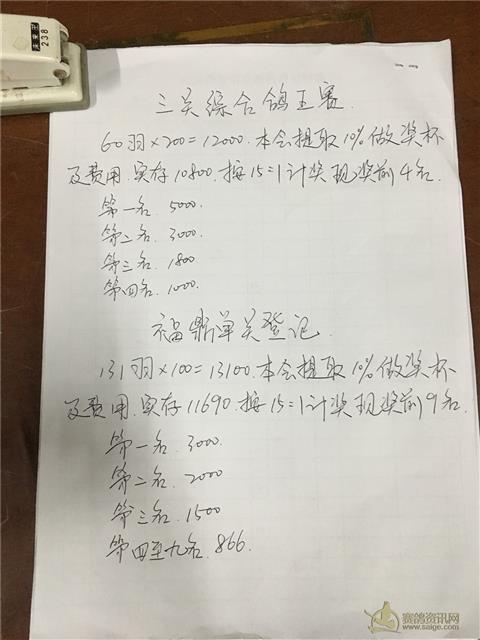 三关综合鸽王赛.
60羽×200=12000.本会提取10%做奖杯
及费用.实存10800.按15=1计奖现奖前4名.
第一名. 5000.
第二名. 3000.
第三名. 1800
第四名. 1000.
福鼎单关登记.
131羽×100=13100.本会提取10%做奖杯
及费用.实存11690.按15=1计奖现奖前9名.
第一名. 3000.
第二名. 2000
第三名. 1500
第四至九名. 866.
未来王
238
赛鸽资讯网
www.saige.com